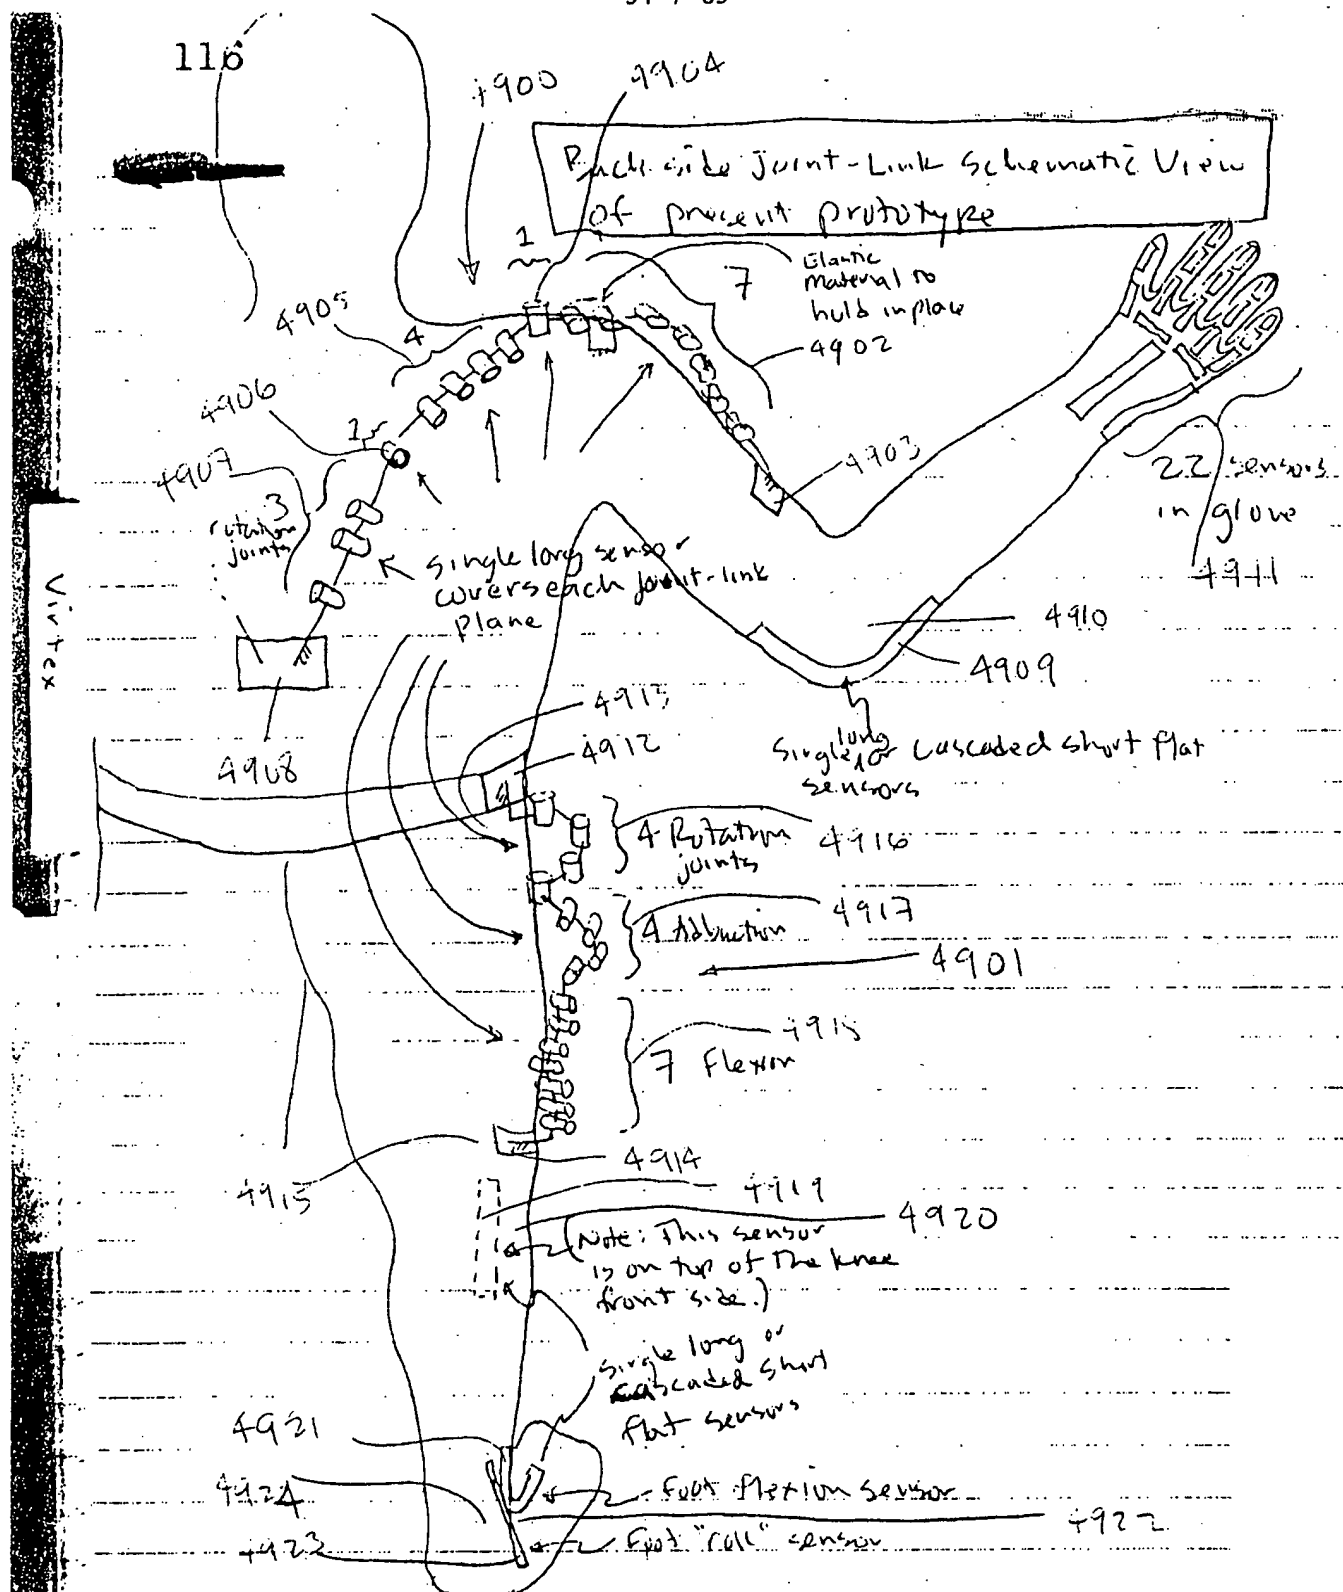 116
4900
4904
Back side Joint-Link Schematic View
of present prototype
1
7
Elastic
material to
hold in place
4902
4905
4
4906
1
4907
3
rotation
joints
4903
22 sensors
in glove
4911
single long sensor
covers each joint-link
plane
Virtex
4910
4909
4908
4913
4912
single long or cascaded short flat
sensors
4 Rotation
joints
4916
4 Abduction
4917
4901
7 Flexion
4918
4914
4915
4919
4920
(Note: This sensor
is on top of the knee
front side.)
single long or
cascaded short
flat sensors
4921
4924
4923
Foot flexion sensor
Foot "roll" sensor
4922